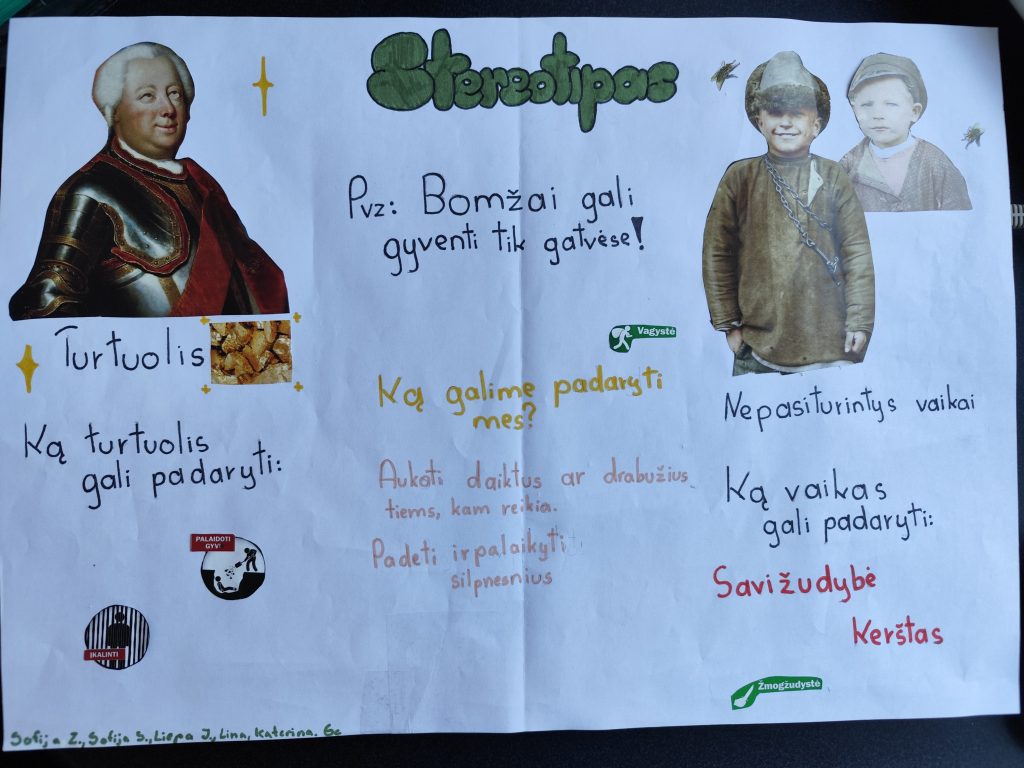 Stereotipas
Pvz: Bomžai gali
gyventi tik gatvėse!
Vagystė
Turtuolis
Ką turtuolis
gali padaryti:
PALAIDOTI
GYVĮ
ĮKALINTI
Ką galime padaryti
mes?
Aukoti daiktus ar drabužius
tiems, kam reikia.
Padėti ir palaikyti
silpnesnius
Nepasiturintys vaikai
Ką vaikas
gali padaryti:
Savižudybė
Kerštas
Žmogžudystė
Sofija Z., Sofija S., Liepa J., Lina, Katerina. 6c